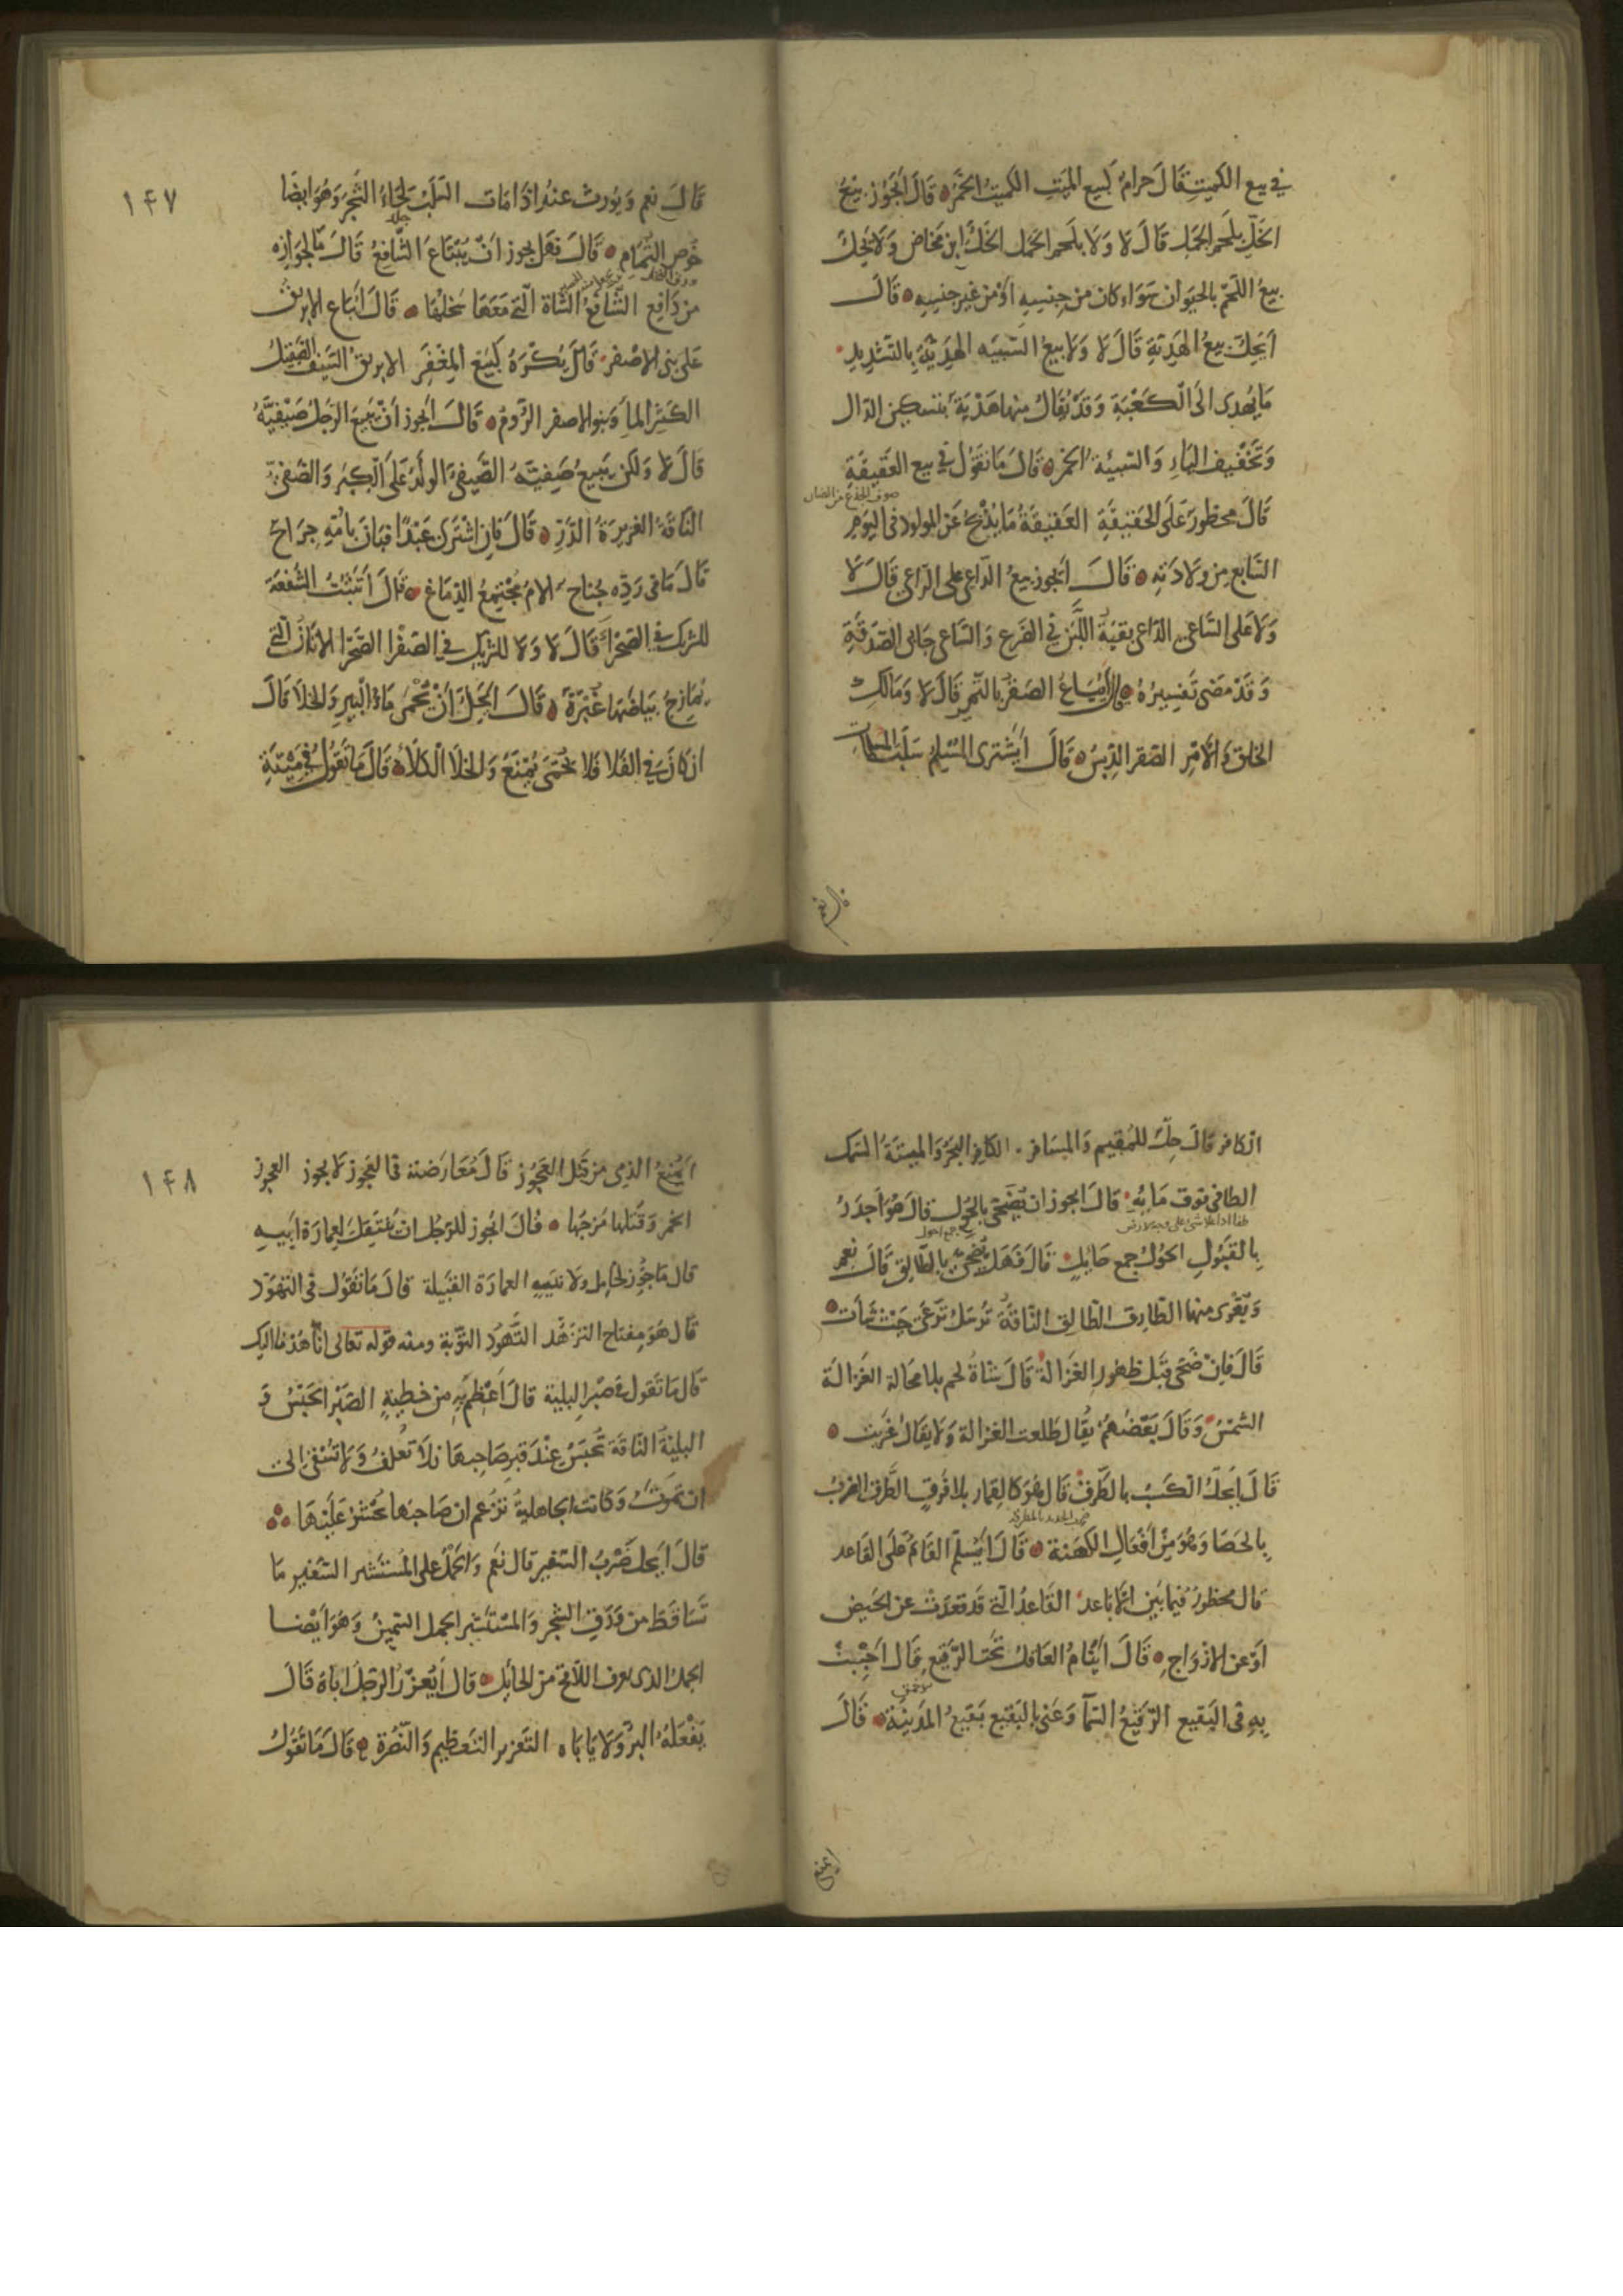 في بيع الكميت قال حرام كبيع الميت الكميت الخمر قال أيجوز بيع
الخل بلحم الجمل قال لا ولا بلحم الحمل الخل ابن مخاض ولا يحل
بيع اللحم بالحيوان سواء كان من جنسه أو من غير جنسه قال
أيحل بيع الهدية قال لا ولا بيع السبيه الهدية بالتشديد
ما يهدى الى الكعبة وقد يقال منها هدية بتسكين الدال
وتخفيف الياء والسبيئة الخمر قال ما تقول في بيع العقيقة
صوف الجذع من الضان
قال محظور على الحقيقة العقيقة ما يذبح عن المولود في اليوم
السابع من ولادته قال أيجوز بيع الداعي على الراعي قال لا
ولا على الساعي الداعي بقية اللبن في الضرع والساعي جابي الصدقة
وقد مضى تفسيره قال أيباع الصقر بالتمر قال لا ومالك
الخلق والأمر الصقر الدبس قال أيشترى المسلم سلب المسلمات
قال نعم
١٤٧
قال نعم ويورث عنه اذا مات السلب لحاء الشجر وهو ايضا
جلد
خوص الثمام قال فهل يجوز أن يبتاع الشافع قال ما لجوازه
من دافع الشافع الشاة التي معها سخلها قال أيباع الابريق
على بني الاصفر قال يكره كبيع المغفر الابريق السيف الصقيل
الكثير الماء وبنو الاصفر الروم قال أيجوز أن يبيع الرجل صيفيه
قال لا ولكن يبيع صفيه الصيفي الولد على الكبر والصفي
الناقة الغزيرة الدر قال فإن اشترى عبدا فبان بأمه جراح
قال ما في رده جناح الام مجتمع الدماغ قال أتثبت الشفعة
للشريك في الصحراء قال لا ولا للشريك في الصفرا الصحرا الاتان التي
يمازج بياضها غبرة قال أيحل أن يحمى ماء البير والخلا قال
ان كان في الفلا فلا يحمى يمنع والخلا الكلأ قال ما تقول في ميتة
الكافر قال حل للمقيم والمسافر الكافر البحر والميتة السمك
الطافي فوق مائه قال أيجوز ان يضحى بالحول قال هو أجدر
طفا اذا علا شيء على وجه الارض
جمع احول
بالقبول الحول جمع حايل قال فهل يضحى بالطالق قال نعم
ويقرى منها الطارق الطالق الناقة ترسل ترعى حيث شاءت
قال فإن ضحى قبل ظهور الغزالة قال شاة لحم بلا محالة الغزالة
الشمس وقال بعضهم يقال طلعت الغزالة ولا يقال غربت
قال أيحل الكسب بالطرق قال هو كالقمار بلا فرق الطرق الضرب
بالحصا وهو من أفعال الكهنة قال أيسلم القائم على القاعد
قال محظور فيما بين الاباعد القاعد التي قد قعدت عن الحيض
أو عن الازواج قال أينام العاقل تحت الرقيع قال أحبب
به في البقيع الرقيع السماء وعنى بالبقيع بقيع المدينة قال
ايمنع
١٤٨
أيمنع الذمي من قتل العجوز قال معارضته في العجوز لا يجوز العجوز
الخمر وقتلها مزجها قال أيجوز للرجل ان ينتقل لعمارة ابيه
قال ما جوز لخامل ولا نبيه العمارة القبيلة قال ما تقول في التهود
قال هو مفتاح التزهد التهود التوبة ومنه قوله تعالى إنا هدنا اليك
قال ما تقول في صبر البلية قال أعظم به من خطية الصبر الحبس و
البلية الناقة تحبس عند قبر صاحبها فلا تعلف ولا تسقى الى
ان تموت وكانت الجاهلية تزعم ان صاحبها يحشر عليها
قال أيحل ضرب السفير قال نعم والحمل على المستشير السفير ما
تساقط من ورق الشجر والمستشير الجمل السمين وهو أيضا
الجمل الذي يعرف اللاقح من الحائل قال أيعزر الرجل اباه قال
يفعله البر ولا ياباه التعزير التعظيم والنصرة قال ما تقول